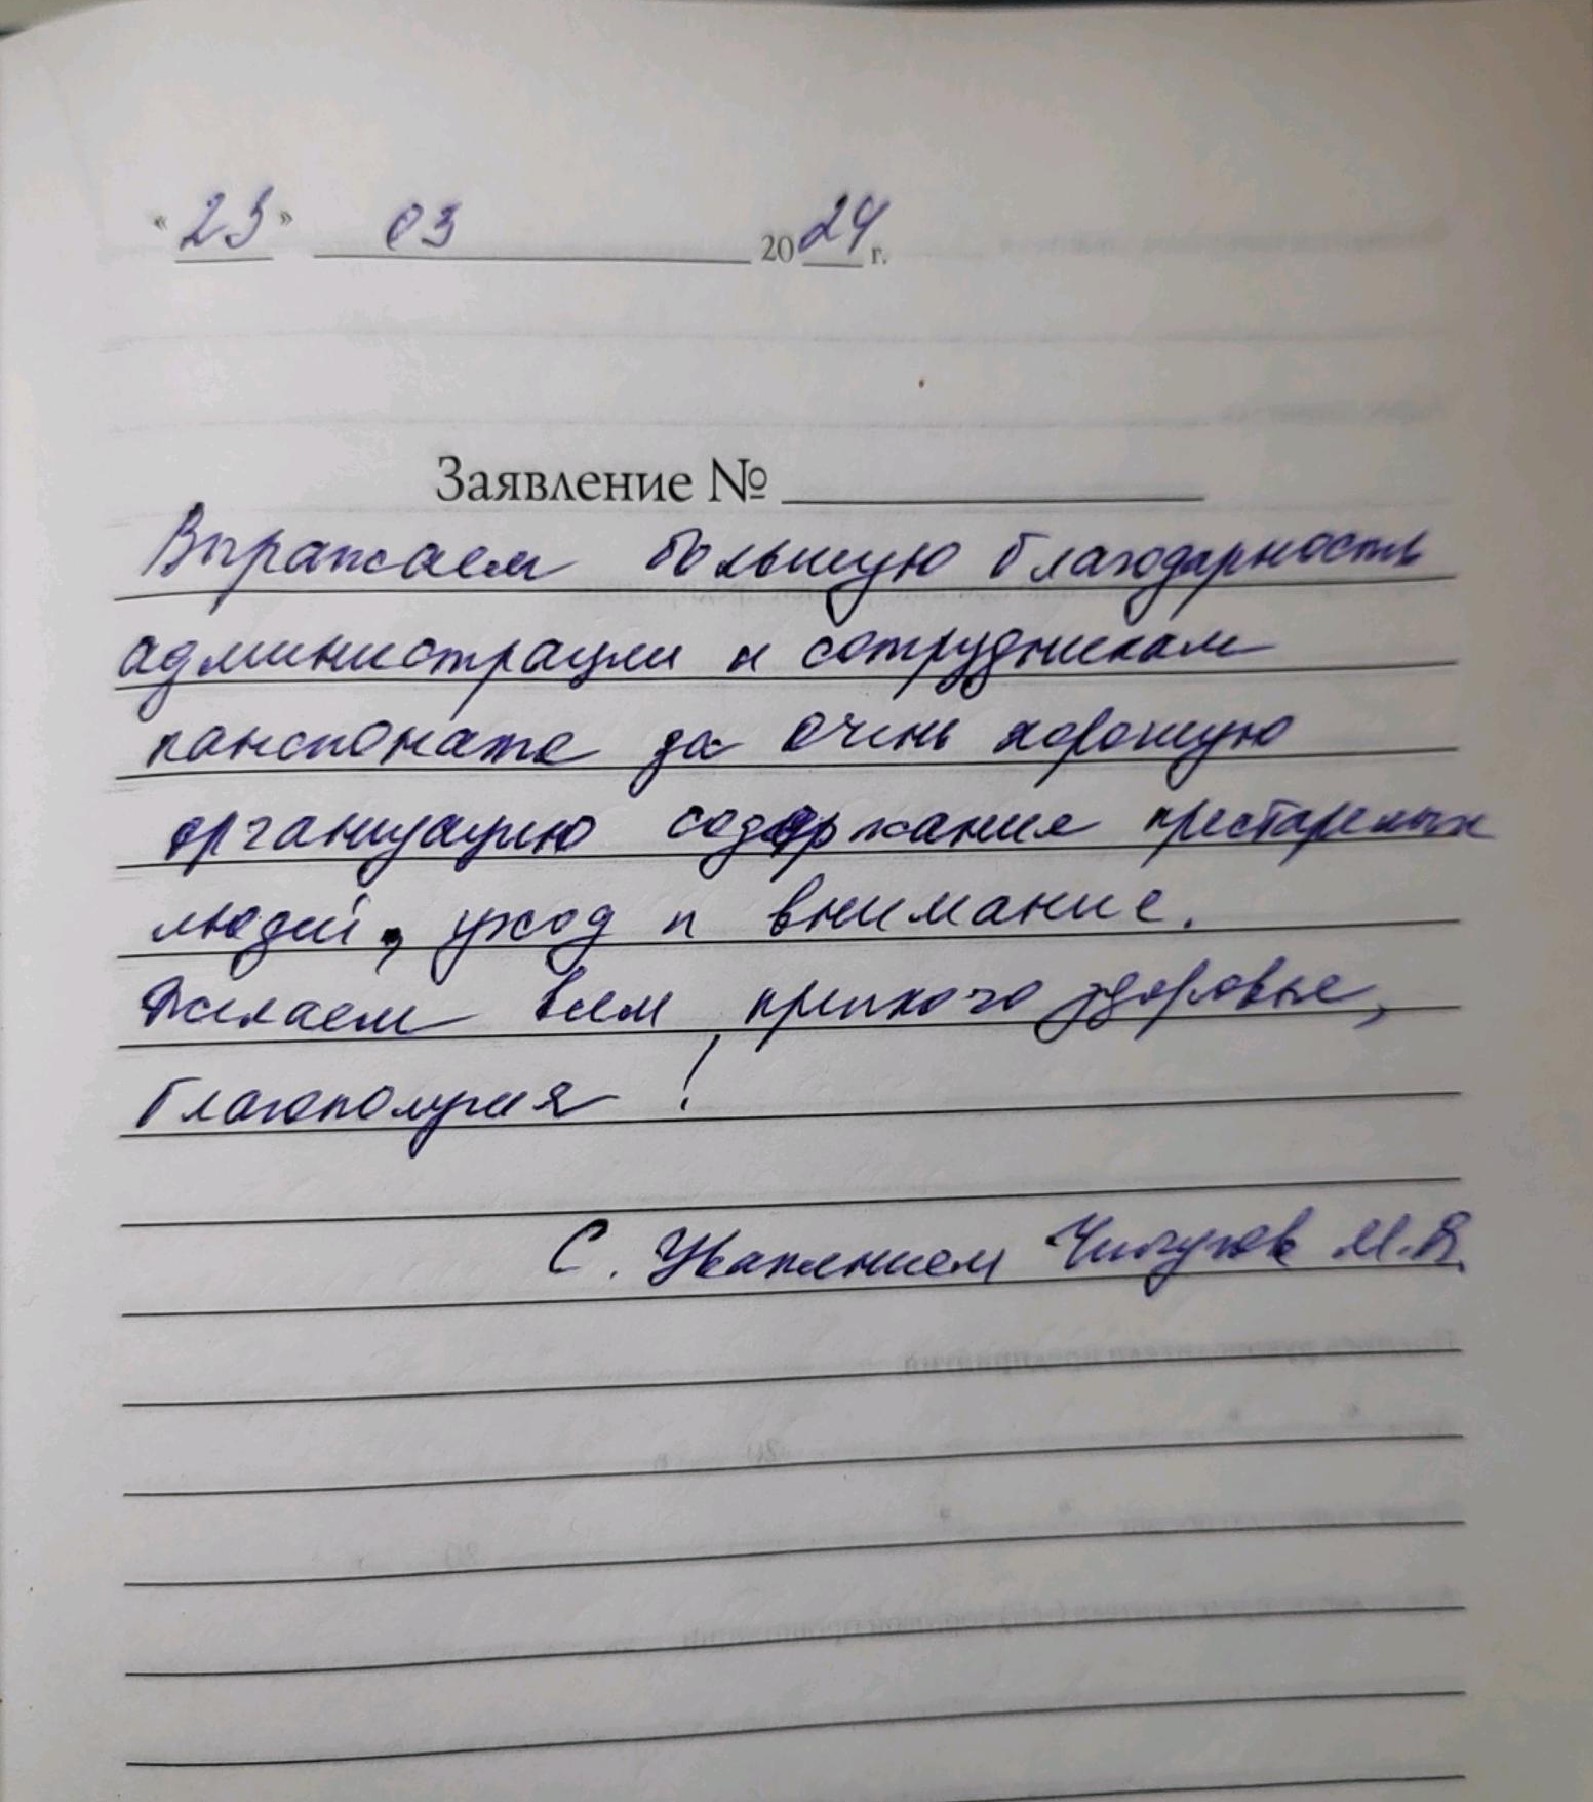 « 23 » 03 2024 г.
Заявление №
Выражаем большую благодарность
администрации и сотрудникам
пансионата за очень хорошую
организацию содержания престарелых
людей, уход и внимание.
Желаем всем крепкого здоровья,
благополучия !
С. Уважением М.В.